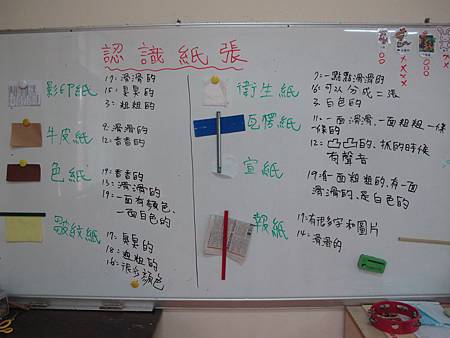 認識紙張
影印紙
19:滑滑的
15:臭臭的
3:粗粗的
牛皮紙
9:滑滑的
12:香香的
色紙
19:香香的
13:滑滑的
19:一面有顏色、
一面白色的
皺紋紙
17:臭臭的
18:粗粗的
16:很多顏色
衛生紙
7:一點點滑滑的
16:可以分成二張
3:白色的
瓦楞紙
11:一面滑滑、一面粗粗一條
一條的
12:凸凸的、抓的時候
有聲音
宣紙
19:有一面粗粗的、有一面
滑滑的、是白色的
報紙
17:有很多字和圖片
14:滑滑的